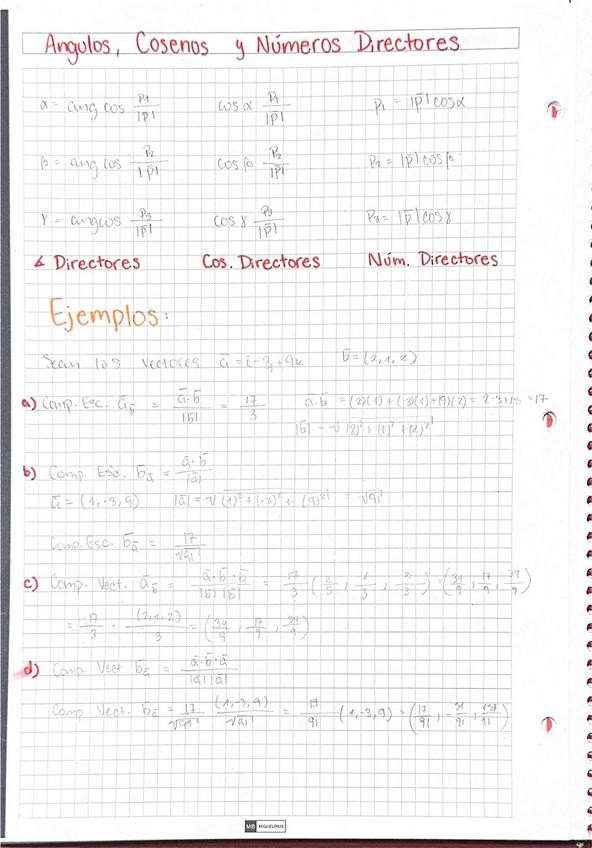 Angulos, Cosenos y Números Directores
α = ang cos P1/|P̄|   cos α P1/|P̄|   P1 = |P̄| cos α
β = ang cos P2/|P̄|   cos β P2/|P̄|   P2 = |P̄| cos β
γ = ang cos P3/|P̄|   cos γ P3/|P̄|   P3 = |P̄| cos γ
∡ Directores   Cos. Directores   Núm. Directores
Ejemplos:
Sean los vectores ā = i - 3j + 9k   b̄ = (2, 1, 2)
a) Comp. Esc. ā_b̄ = ā·b̄/|b̄| = 17/3   ā·b̄ = (2)(1) + (-3)(1) + (9)(2) = 2-3+18 = 17
|b̄| = √(2)² + (1)² + (2)²
b) Comp. Esc. b̄_ā = ā·b̄/|ā|
ā = (1, -3, 9)   |ā| = √(1)² + (-3)² + (9)² = √91
Comp. Esc. b̄_ā = 17/√91
c) Comp. Vect. ā_b̄ = ā·b̄·b̄/|b̄||b̄| = 17/3 (2/3, 1/3, 2/3) = (34/9, 17/9, 34/9)
= 17/3 · (2,1,2)/3 = (34/9, 17/9, 34/9)
d) Comp Vect b̄_ā = ā·b̄·ā/|ā||ā|
Comp Vect. b̄_ā = 17/√91 (1,-3,9)/√91 = 17/91 (1,-3,9) = (17/91,
MIQUELRIUS